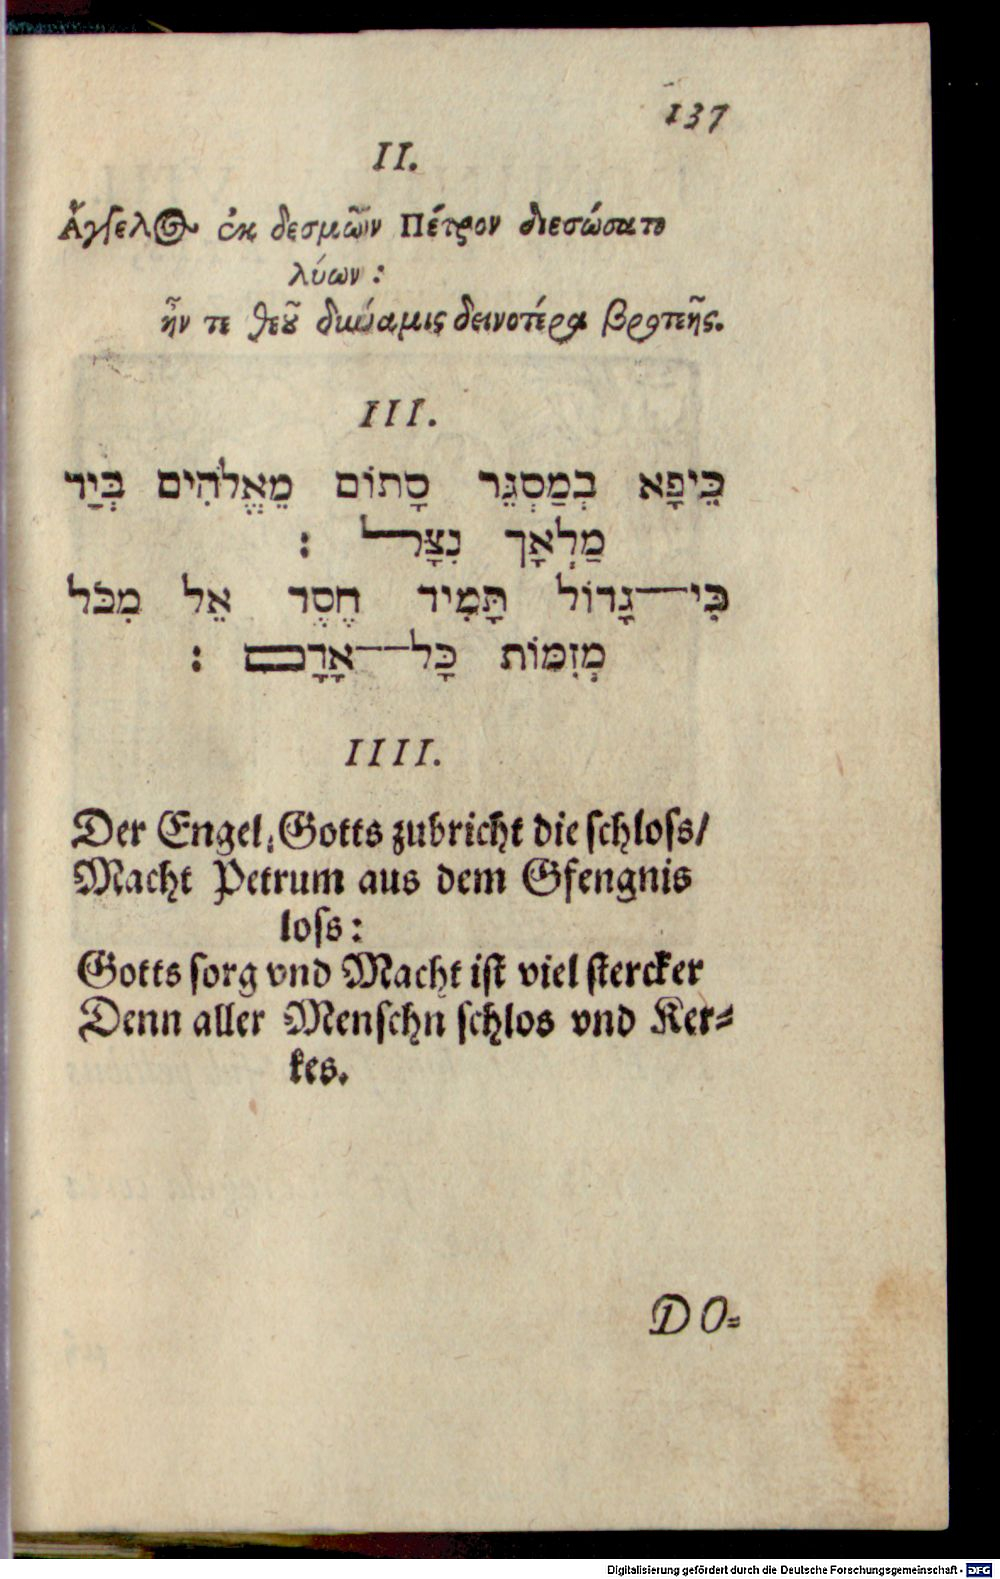 137
II.
Ἄγγελος ἐκ δεσμῶν Πέτρον διεσώσατο
λύων:
ἦν τε θεοῦ δύναμις δεινοτέρα βροτεῆς.
III.
כֵּיפָא בְמַסְגֵּר סָתוֹם מֵאֱלֹהִים בְּיַד
מַלְאָךְ נִצָּל :
כִּי־גָדוֹל תָּמִיד חֶסֶד אֵל מִכֹּל
מְזִמּוֹת כָּל־אָדָם :
IIII.
Der Engel Gotts zubricht die schloss/
Macht Petrum aus dem Gfengnis
loss:
Gotts sorg vnd Macht ist viel stercker
Denn aller Menschn schlos vnd Ker⸗
kes.
DO⸗
Digitalisierung gefördert durch die Deutsche Forschungsgemeinschaft - DFG